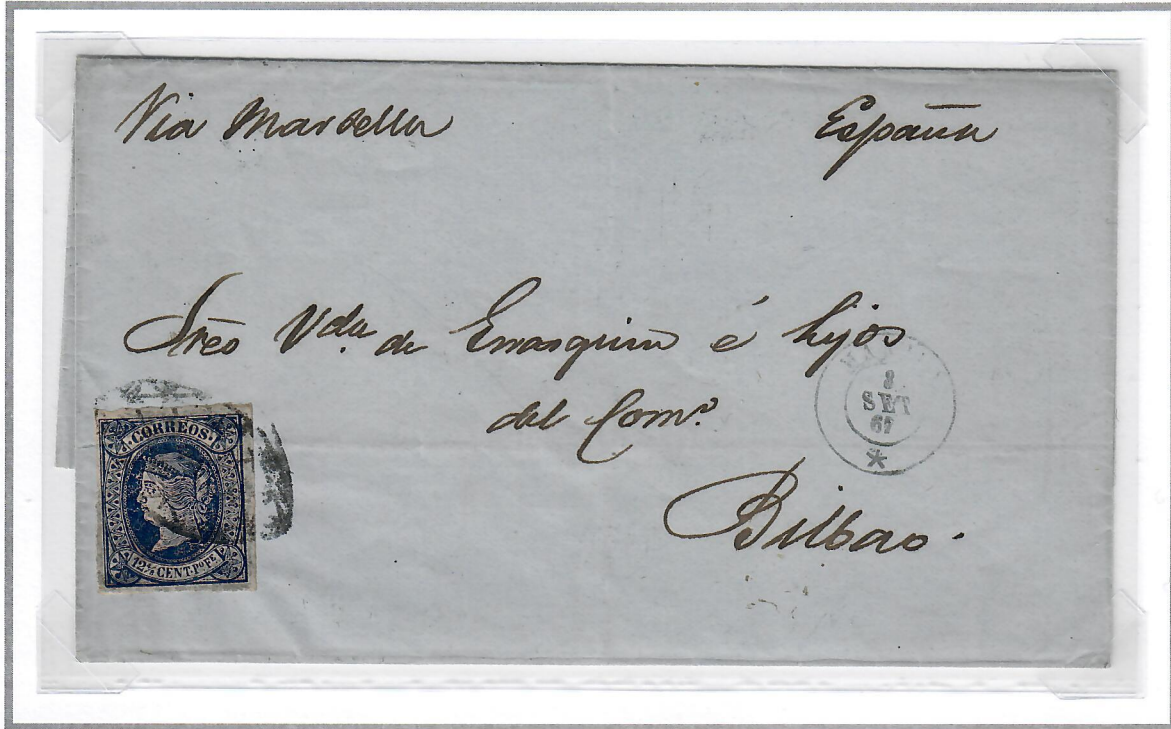 Via Marsella
España
Sres Vda. de Errasquin é hijos
del Comº.
Bilbao.
3
SET
CORREOS
12½ CENT. Pº Fe